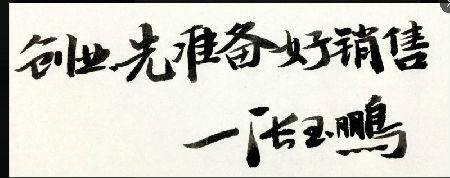 创业先准备好销售
一张玉鹏